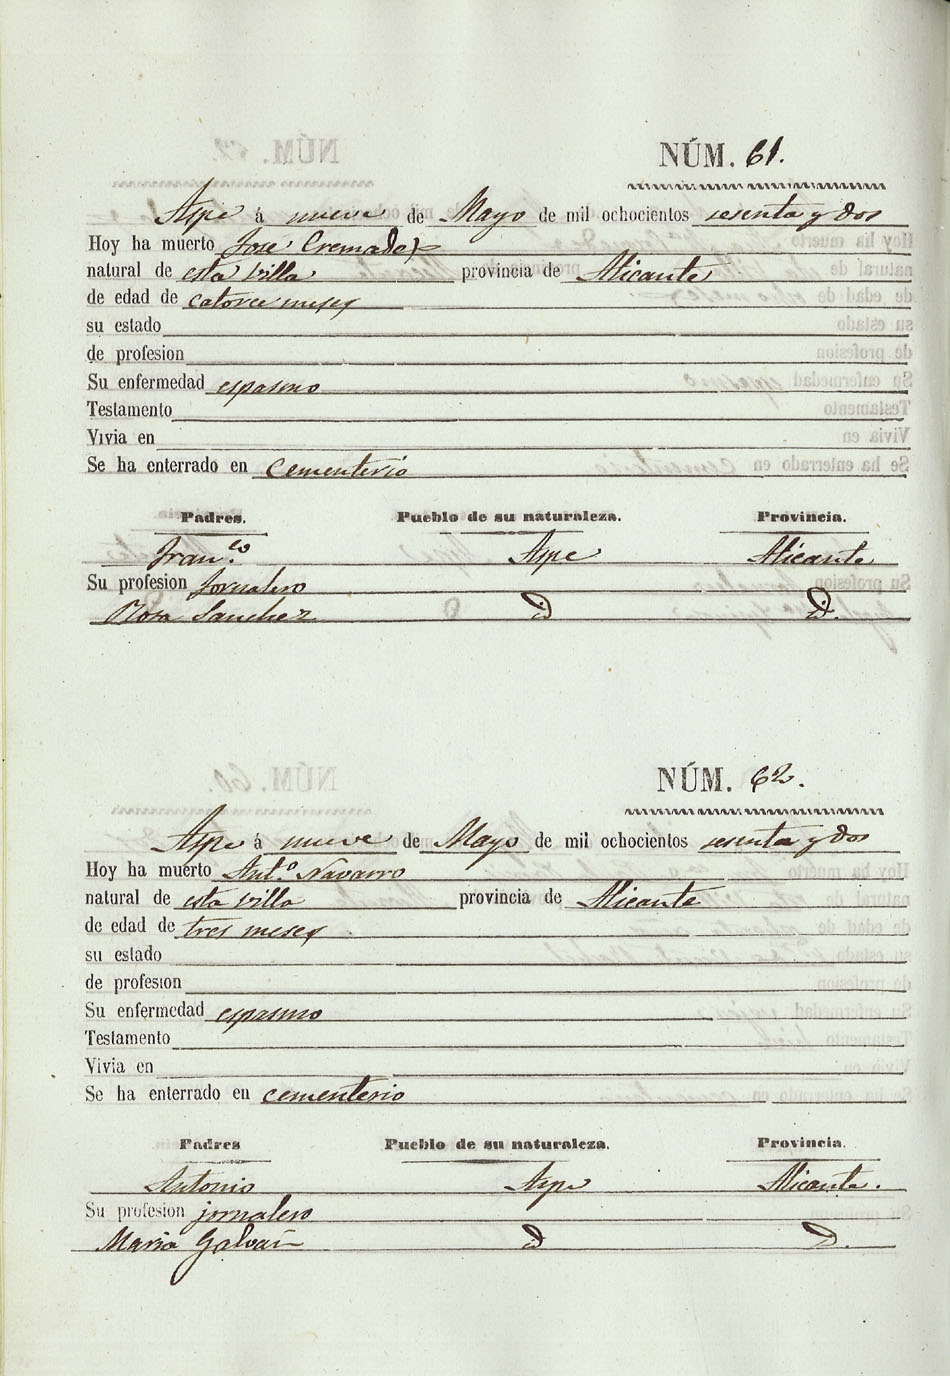 NÚM. 61.
Aspe á nueve de Mayo de mil ochocientos sesenta y dos
Hoy ha muerto José Cremades
natural de esta villa provincia de Alicante
de edad de catorce meses
su estado
de profesion
Su enfermedad espasmo
Testamento
Vivia en
Se ha enterrado en cementerio
Padres. Pueblo de su naturaleza. Provincia.
Fran.co Aspe Alicante
Su profesion Jornalero
Rosa Sanchez D D.
NÚM. 62.
Aspe á nueve de Mayo de mil ochocientos sesenta y dos
Hoy ha muerto Ant.o Navarro
natural de esta villa provincia de Alicante
de edad de tres meses
su estado
de profesion
Su enfermedad espasmo
Testamento
Vivia en
Se ha enterrado en cementerio
Padres Pueblo de su naturaleza. Provincia.
Antonio Aspe Alicante.
Su profesion jornalero
Maria Galvañ D D.